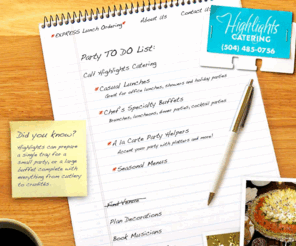 *EXPRESS Lunch Ordering*
About Us
Contact
Highlights
CATERING
(304) 485-0756
Party TO DO List:
Call Highlights Catering
*Casual Lunches
Great for office lunches, showers and holiday parties
*Chef's Specialty Buffets
Brunches, luncheons, dinner parties, cocktail parties
*A la Carte Party Helpers
Accent your party with platters and more!
*Seasonal Menus
Find Venue
Plan Decorations
Book Musicians
Did you know?
Highlights can prepare
a single tray for a
small party, or a large
buffet complete with
everything from cutlery
to crudités.